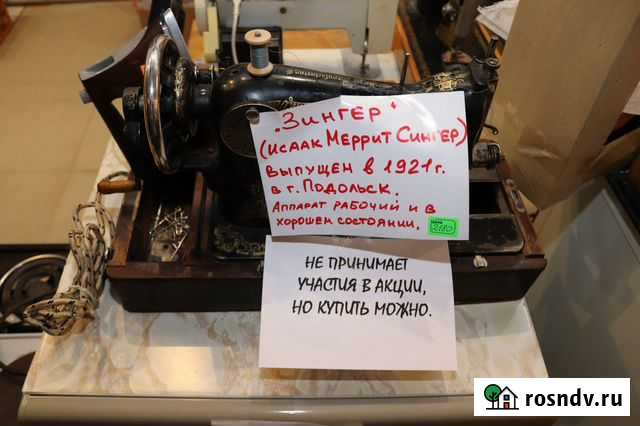 „ЗИНГЕР"
(ИСААК МЕРРИТ СИНГЕР)
ВЫПУЩЕН В 1921 г.
в г. ПОДОЛЬСК.
АППАРАТ РАБОЧИЙ И В
ХОРОШЕМ СОСТОЯНИИ.
НЕ ПРИНИМАЕТ
УЧАСТИЯ В АКЦИИ,
НО КУПИТЬ МОЖНО.
rosndv.ru